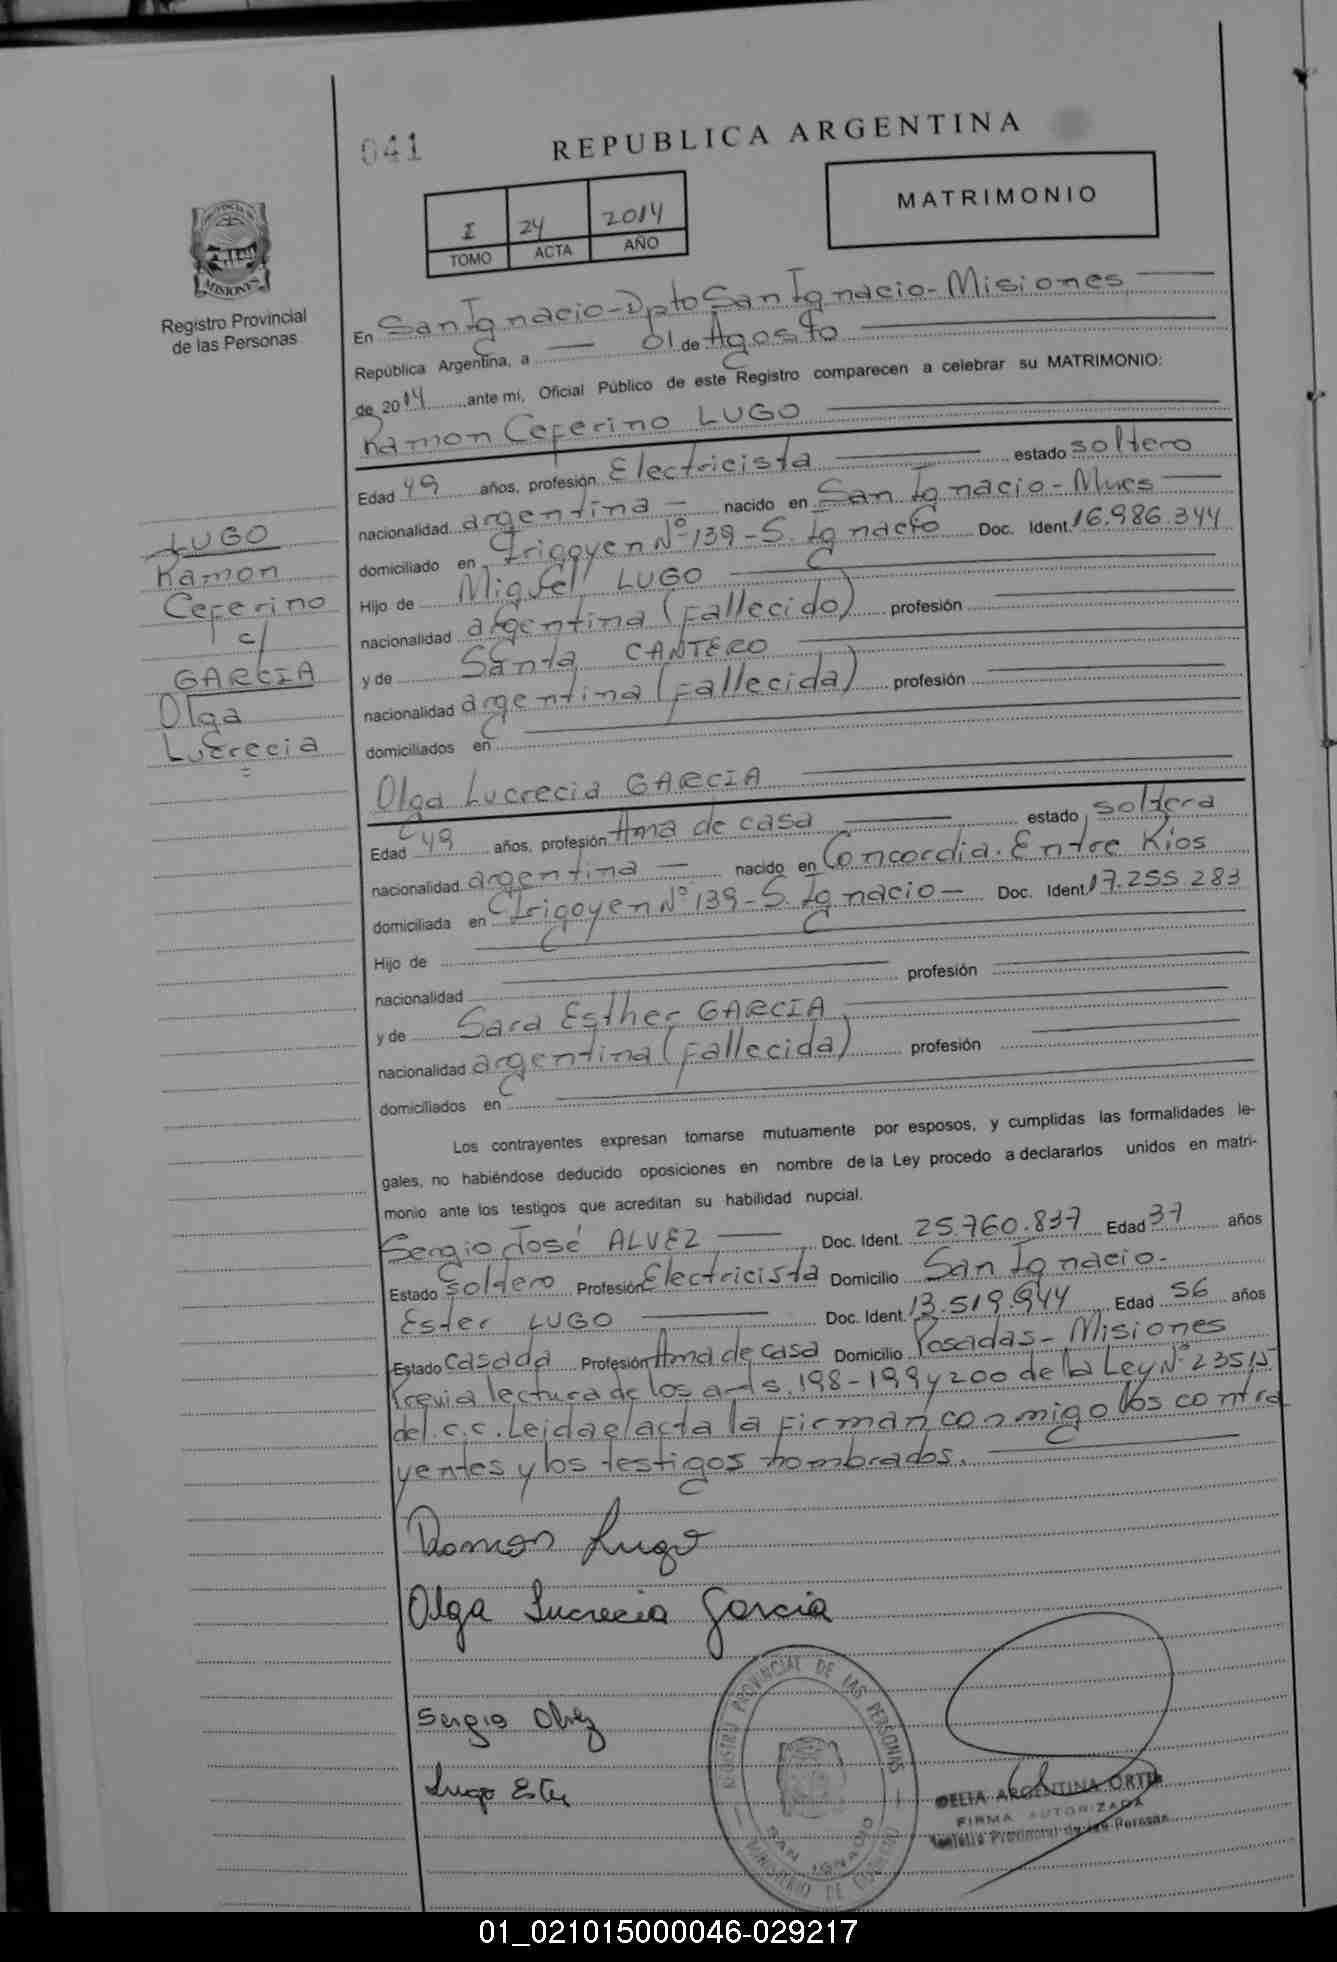 041
REPUBLICA ARGENTINA
MATRIMONIO
I 24 2014
TOMO ACTA AÑO
PROVINCIA DE MISIONES
Registro Provincial
de las Personas
En San Ignacio-Dpto San Ignacio-Misiones
República Argentina, a 01 de Agosto
de 2014 ante mi, Oficial Público de este Registro comparecen a celebrar su MATRIMONIO:
Ramon Ceferino LUGO
Edad 49 años, profesión Electricista estado soltero
nacionalidad argentina nacido en San Ignacio-Mnes
domiciliado en Irigoyen Nº 139-S. Ignacio Doc. Ident. 16.986.344
Hijo de Miguel LUGO
nacionalidad argentina (Fallecido) profesión
y de Santa CANTERO
nacionalidad argentina (Fallecida) profesión
domiciliados en
LUGO
Ramon
Ceferino
c/
GARCIA
Olga
Lucrecia
Olga Lucrecia GARCIA
Edad 49 años, profesión Ama de casa estado soltera
nacionalidad argentina nacido en Concordia. Entre Rios
domiciliada en Irigoyen Nº 139-S. Ignacio Doc. Ident. 17.255.283
Hijo de
nacionalidad profesión
y de Sara Esther GARCIA
nacionalidad argentina (Fallecida) profesión
domiciliados en
Los contrayentes expresan tomarse mutuamente por esposos, y cumplidas las formalidades le-
gales, no habiéndose deducido oposiciones en nombre de la Ley procedo a declararlos unidos en matri-
monio ante los testigos que acreditan su habilidad nupcial.
Sergio José ALVEZ Doc. Ident. 25.760.837 Edad 37 años
Estado Soltero Profesión Electricista Domicilio San Ignacio.
Ester LUGO Doc. Ident. 13.519.944 Edad 56 años
Estado Casada Profesión Ama de casa Domicilio Posadas-Misiones
Previa lectura de los arts. 198-199 y 200 de la Ley Nº 23515
del.C.C. Leida el acta la Firman conmigo los contra
yentes y los testigos nombrados.
Ramon Lugo
Olga Lucrecia Garcia
Sergio Alvez
Lugo Ester
REGISTRO PROVINCIAL DE LAS PERSONAS
SAN IGNACIO
MINISTERIO DE GOBIERNO
DELIA ARGENTINA ORTIZ
FIRMA AUTORIZADA
Provincial de las Personas
01_021015000046-029217